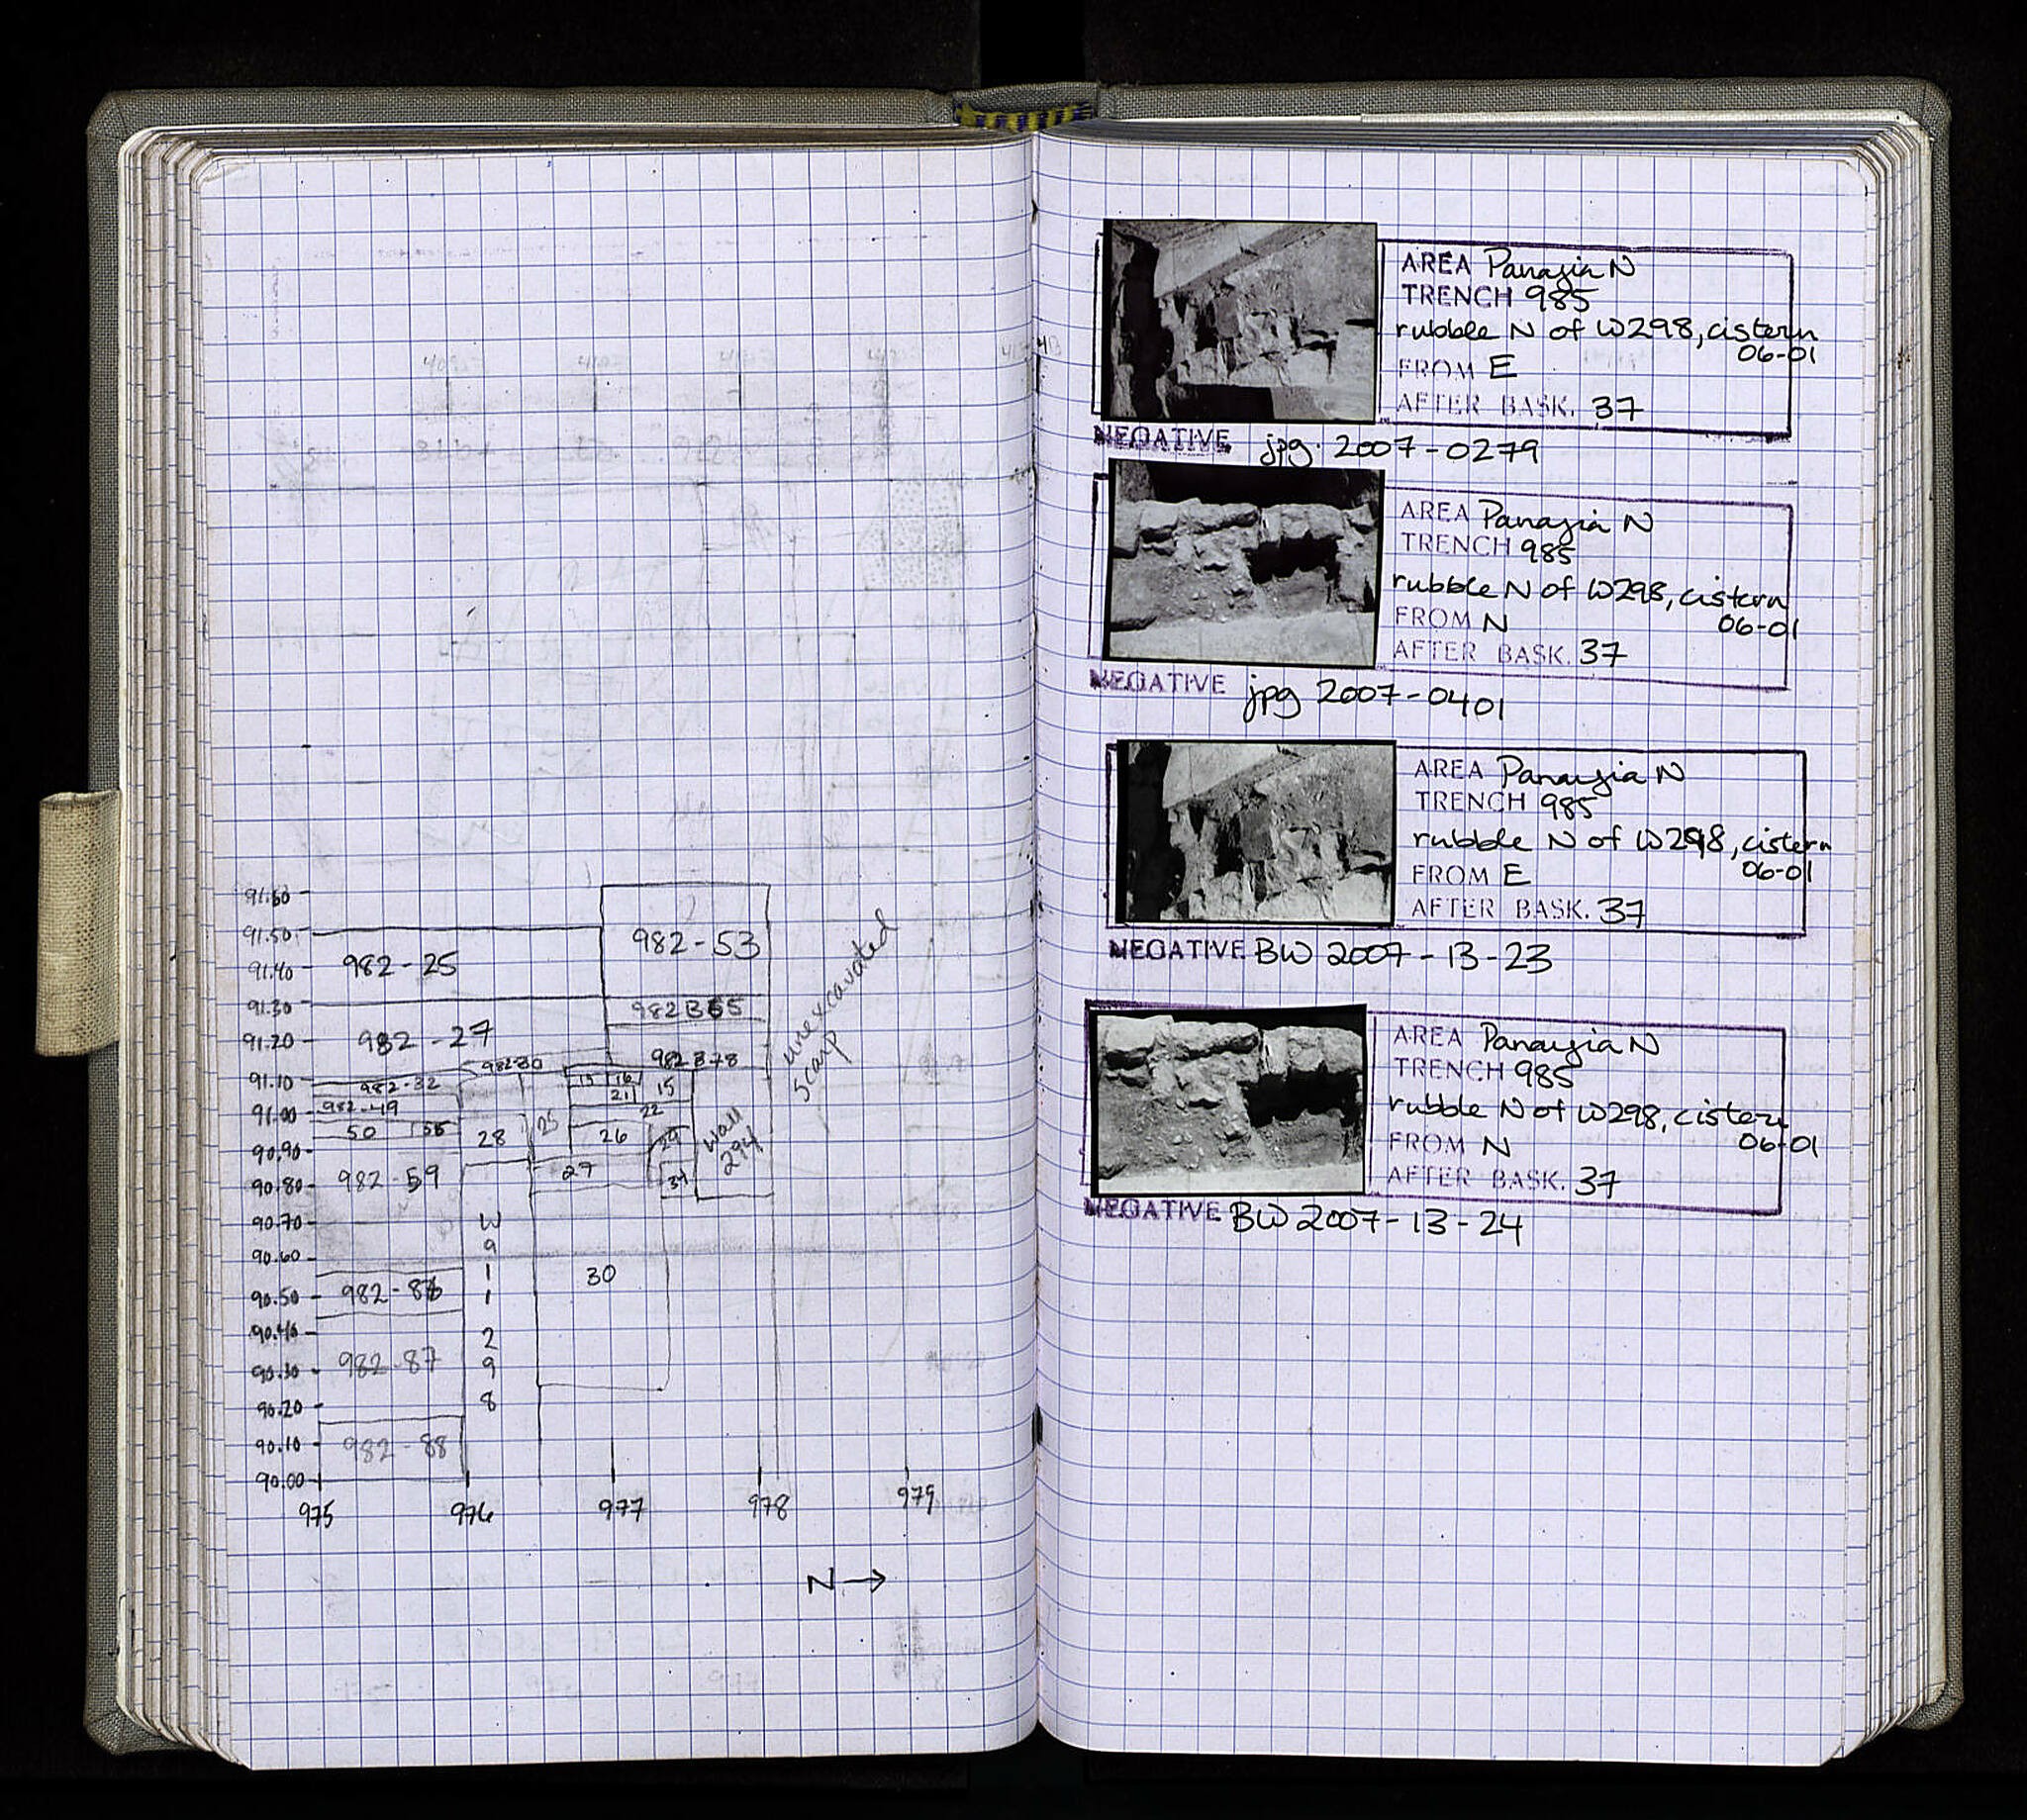 91.60
91.50
982-53
982-25
91.40
91.30
982B
91.20
982-27
unexcavated
scarp
982-30
982 B 78
91.10
982-32
15
16
15
21
91.00
982-49
22
50
55
28
25
26
29
Wall
294
90.90
982-59
27
31
90.80
90.70
W
a
l
l
2
9
8
90.60
30
90.50
982-86
90.40
982-87
90.30
90.20
90.10
982-88
90.00
975
976
977
978
979
N →
AREA Panayia N
TRENCH 985
rubble N of W298, cistern
06-01
FROM E
AFTER BASK. 37
NEGATIVE jpg. 2007-0279
AREA Panayia N
TRENCH 985
rubble N of W298, cistern
06-01
FROM N
AFTER BASK. 37
NEGATIVE jpg 2007-0401
AREA Panayia N
TRENCH 985
rubble N of W298, cistern
06-01
FROM E
AFTER BASK. 37
NEGATIVE BW 2007-13-23
AREA Panayia N
TRENCH 985
rubble N of W298, cistern
06-01
FROM N
AFTER BASK. 37
NEGATIVE BW 2007-13-24